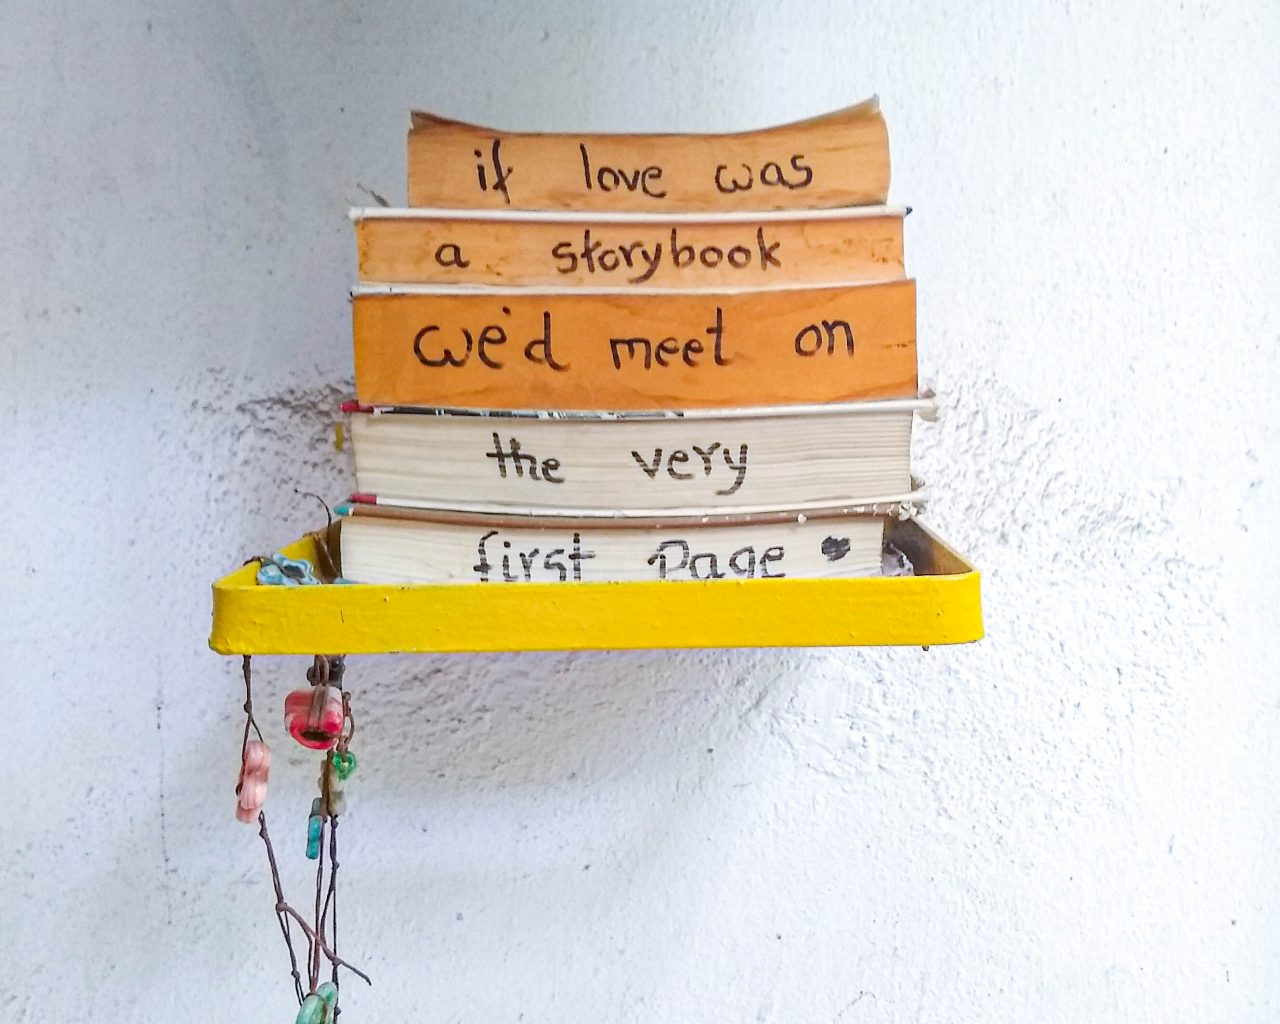 if love was
a storybook
we'd meet on
the very
first Page ♥